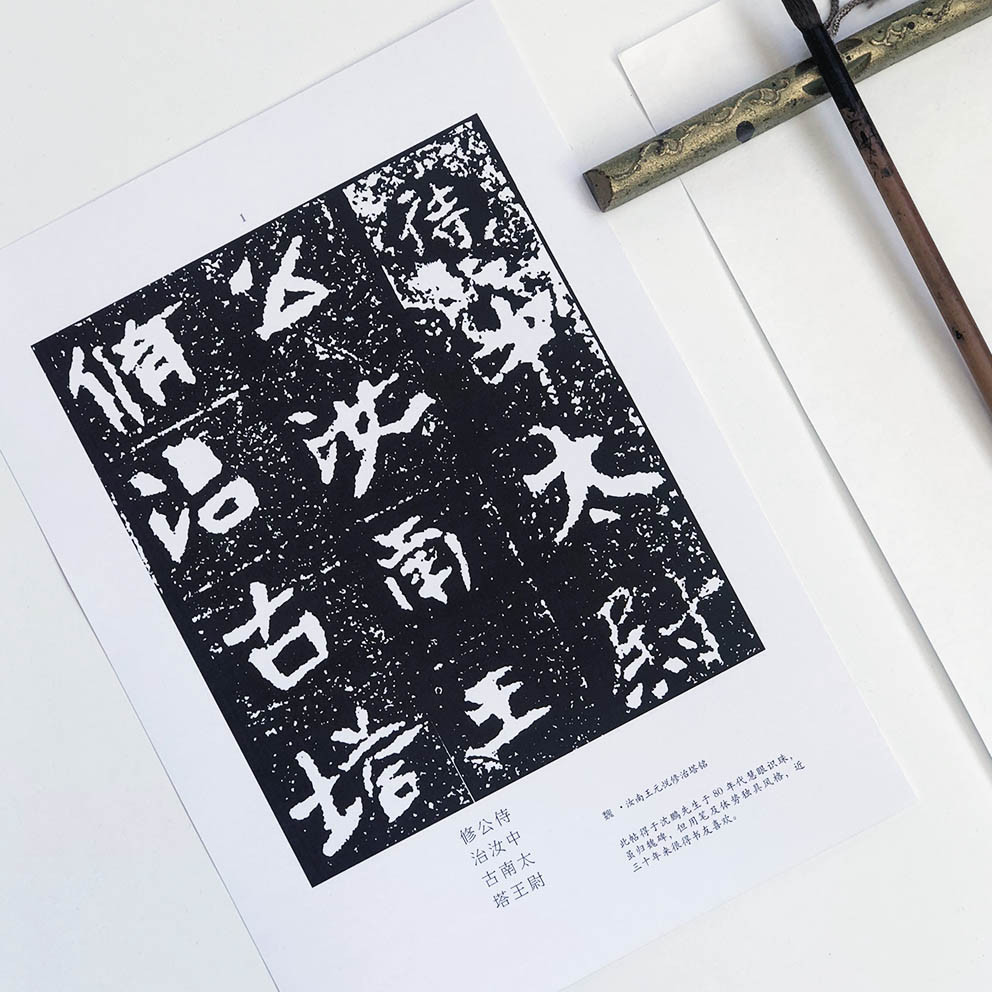 1
侍中太尉
公汝南王
修治古塔
侍中太尉
公汝南王
修治古塔
魏·汝南王元悦修治塔铭
此帖得于沈鹏先生于80年代慧眼识珠，
虽归魏碑，但用笔及体势独具风格，近
三十年来很得书友喜欢。